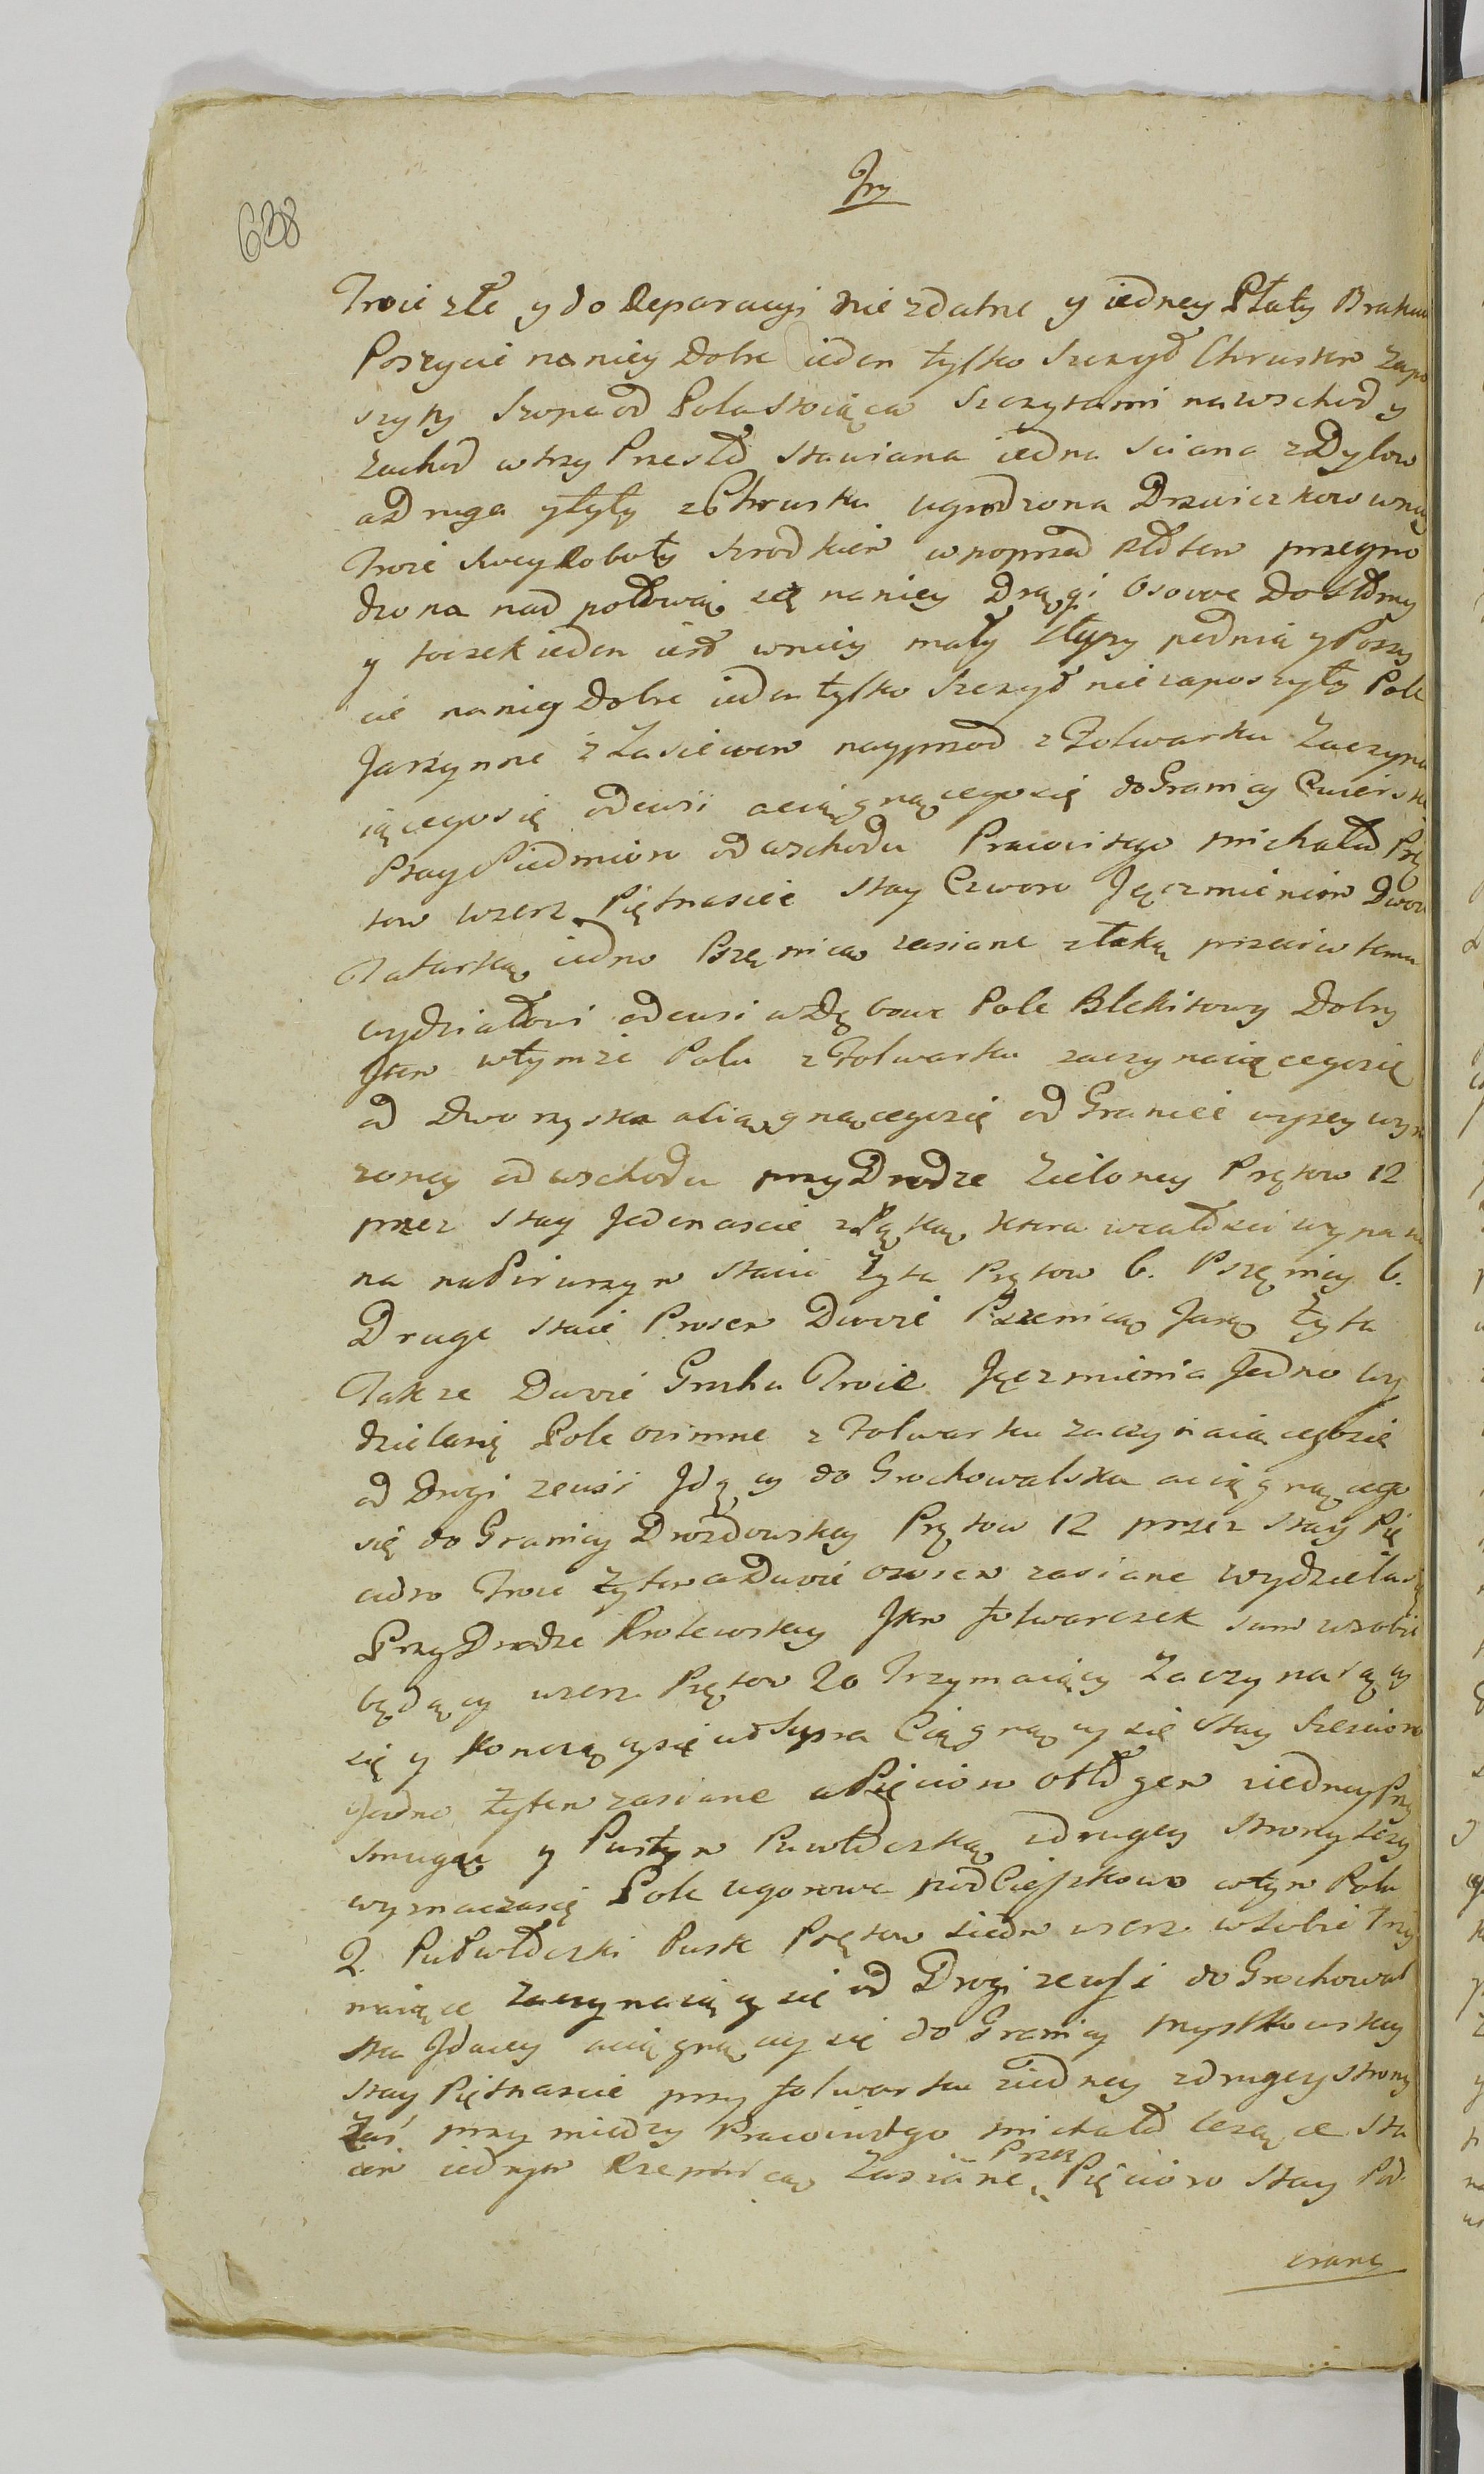 Jny
638
Troie złe y do Reparacyi nie zdatne y iedney Płaty Brakuie
Poszycie naniey Dobre ieden tylko Szczyd Chrustem zapo
szyty Szopa od Pola Stoiąca Szczytami na wschod y
zachod w trzy Przesła stawiana iedna sciana z Dylow
a Druga y tyły z Chrustu ugrodzona Drzwiczkow w niey
Troie swey Roboty srodkiem w poprzed płotem przegro
dzona nad połową są naniey Drągi Osowe Do słomy
y toczek ieden iest w niey mały słupy pod nią y Poszy
cie naniey Dobre ieden tylko Szczyd nie zaposzyty Pole
Jarzynne z Zasiewem nayprzod z Folwarku Zaczyna
iącego się od wsi a ciągnącego się do Granicy Cwierske
Stay Siedmioro od wschodu Pracowitego Michała Prę
tow wzerz Piętnascie Stay Czworo Jęczmieniem Dwoie
Tatarką iedno Pszenicą zasiane z łąką przeciw temu
wydziałowi od wsi w Dębowe Pole Blekitowy Dolny
Item w tymże Polu z Folwarku zaczynaiącego się
od Dworzyska a ciągnącego się od Granice wyzey wyra
zoney od wschodu przy Drodze Zieloney Prętow 12
przez Stay Jedenascie z Łąką ktora
na na Pierwszym Staiu Zyta Prętow 6. Pszenicy 6.
Drugie Staie Prosem Dwoie Pszenicą Jarą Zyta
Takze Dwoie Grochu Troie Jęczmienia Jedno wy
dziela się Pole ozimne z Folwarku zaczynaiącego się
od Drogi ze wsi Jdący do Grochowalska a ciągnącego
się do Granicy Drozdowskey Prętow 12 przez Stay Pię
cioro Troie Zytem a Dwoie owsem zasiane wydziela się
Przy Drodze Krolewskiey Jtem folwarczek sam w sobie
będący wzerz Prętow 20 Trzymaiący Zaczynaiący
się y Konczący się ut Supra Ciągnący się Stay Szescioro
Jedno Zytem zasiane a Pięcioro odłogem z iedney Przy
Smugu y Pustym Puwłoczką z drugiey strony lezy
wyznacza się Pole ugorowe pod Ciepskowo w tym Polu
2. Pułwłoczki Puste Prętow siedm wzerz w sobie Trzy
maiące zaczynaiący się od Drogi ze wsi do Grochowal
ska Jdącey a ciągnący się do Granicy Myslkowskiey
Stay Piętnascie przy folwarku z iedney z drugiey strony
Zas przy miedzy Pracowitego Michała lezące Sta
iem iednym Rzepnicą Zasiane Przez Pięcioro Stay Pod
orany